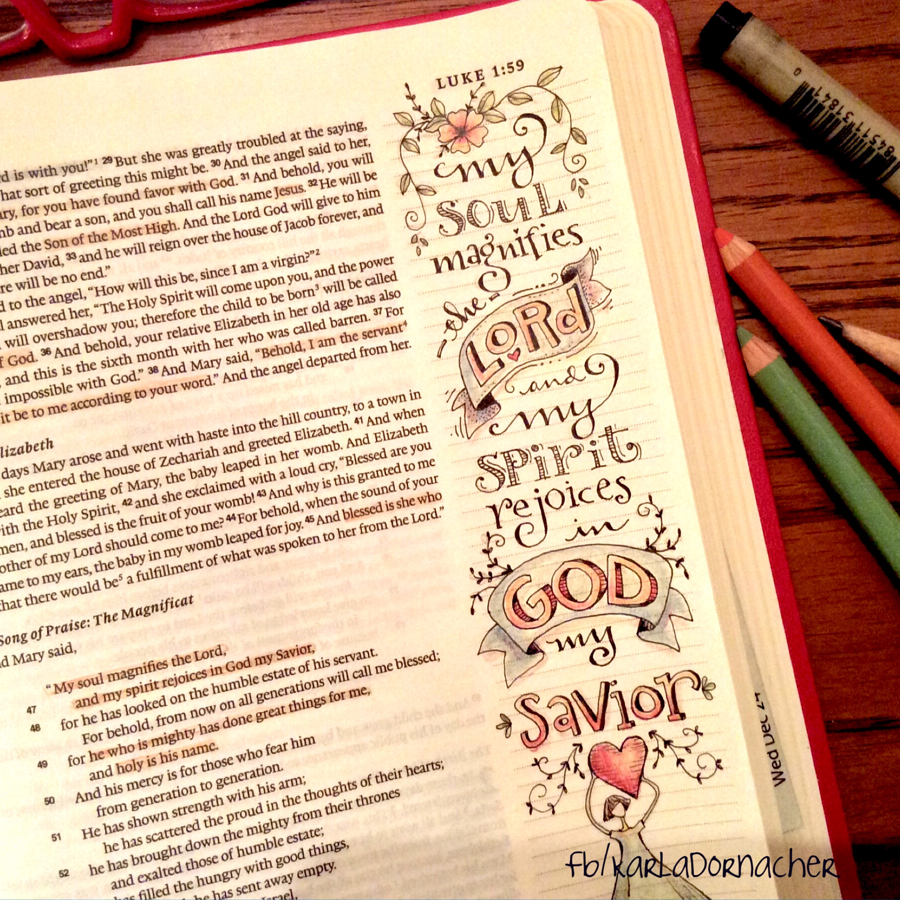 LUKE 1:59
rd is with you!”¹ 29 But she was greatly troubled at the saying,
hat sort of greeting this might be. 30 And the angel said to her,
ary, for you have found favor with God. 31 And behold, you will
mb and bear a son, and you shall call his name Jesus. 32 He will be
led the Son of the Most High. And the Lord God will give to him
her David, 33 and he will reign over the house of Jacob forever, and
re will be no end.”
d to the angel, “How will this be, since I am a virgin?”²
l answered her, “The Holy Spirit will come upon you, and the power
will overshadow you; therefore the child to be born³ will be called
f God. 36 And behold, your relative Elizabeth in her old age has also
, and this is the sixth month with her who was called barren. 37 For
impossible with God.” 38 And Mary said, “Behold, I am the servant⁴
it be to me according to your word.” And the angel departed from her.
lizabeth
days Mary arose and went with haste into the hill country, to a town in
she entered the house of Zechariah and greeted Elizabeth. 41 And when
eard the greeting of Mary, the baby leaped in her womb. And Elizabeth
with the Holy Spirit, 42 and she exclaimed with a loud cry, “Blessed are you
men, and blessed is the fruit of your womb! 43 And why is this granted to me
other of my Lord should come to me? 44 For behold, when the sound of your
ame to my ears, the baby in my womb leaped for joy. 45 And blessed is she who
that there would be⁵ a fulfillment of what was spoken to her from the Lord.”
Song of Praise: The Magnificat
d Mary said,
“My soul magnifies the Lord,
47 and my spirit rejoices in God my Savior,
48 for he has looked on the humble estate of his servant.
For behold, from now on all generations will call me blessed;
49 for he who is mighty has done great things for me,
and holy is his name.
50 And his mercy is for those who fear him
from generation to generation.
51 He has shown strength with his arm;
he has scattered the proud in the thoughts of their hearts;
52 he has brought down the mighty from their thrones
and exalted those of humble estate;
has filled the hungry with good things,
he has sent away empty.
Israel,
my
SOUL
magnifies
the
LORd
and
my
SPirit
rejoices
in
GOD
my
SaVior
Wed Dec 24
fb/KarLaDornacher